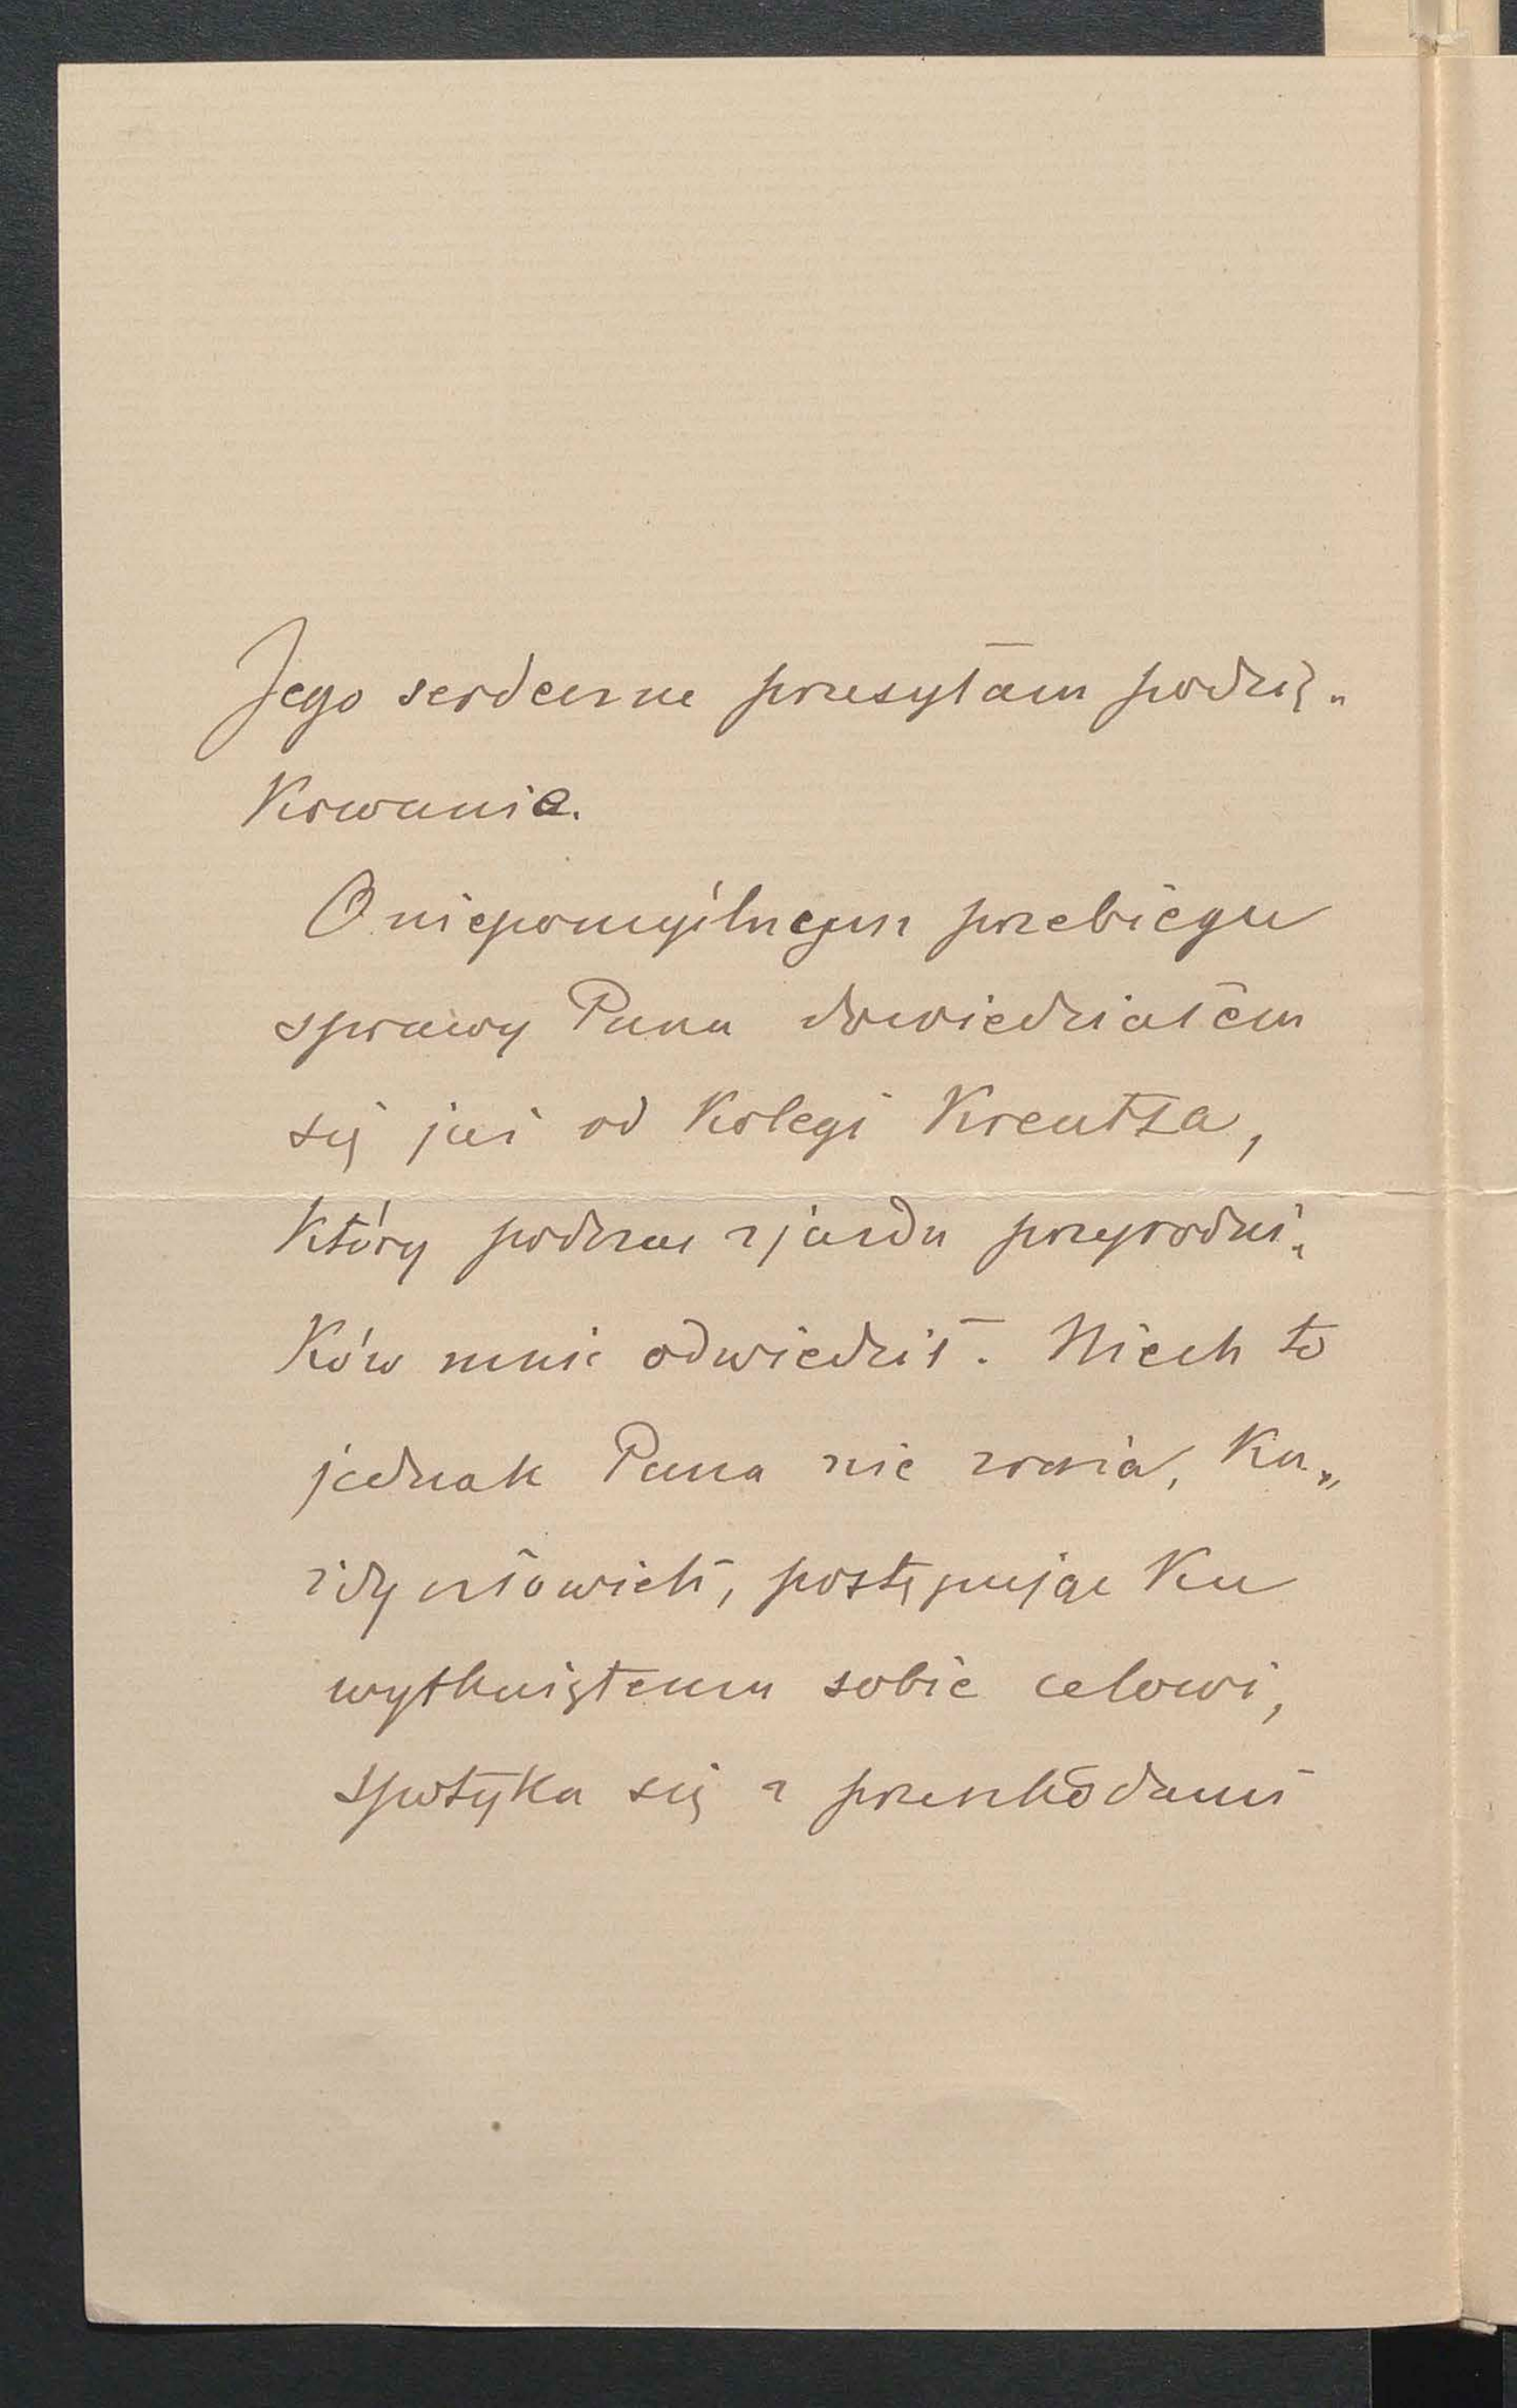 Jego serdeczne przesyłam podzię-
kowanie.
O niepomyślnym przebiegu
sprawy Pana dowiedziałem
się już od kolegi Kreutza,
który podczas zjazdu przyrodni-
ków mnie odwiedził. Niech to
jednak Pana nie zraża, ka-
żdy człowiek, postępując ku
wytkniętemu sobie celowi,
spotyka się z przeszkodami